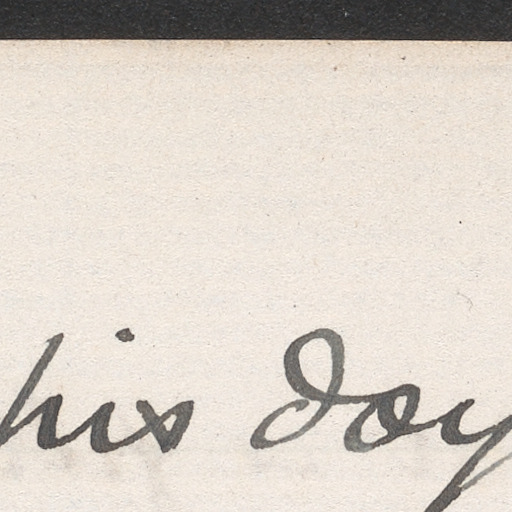 his day